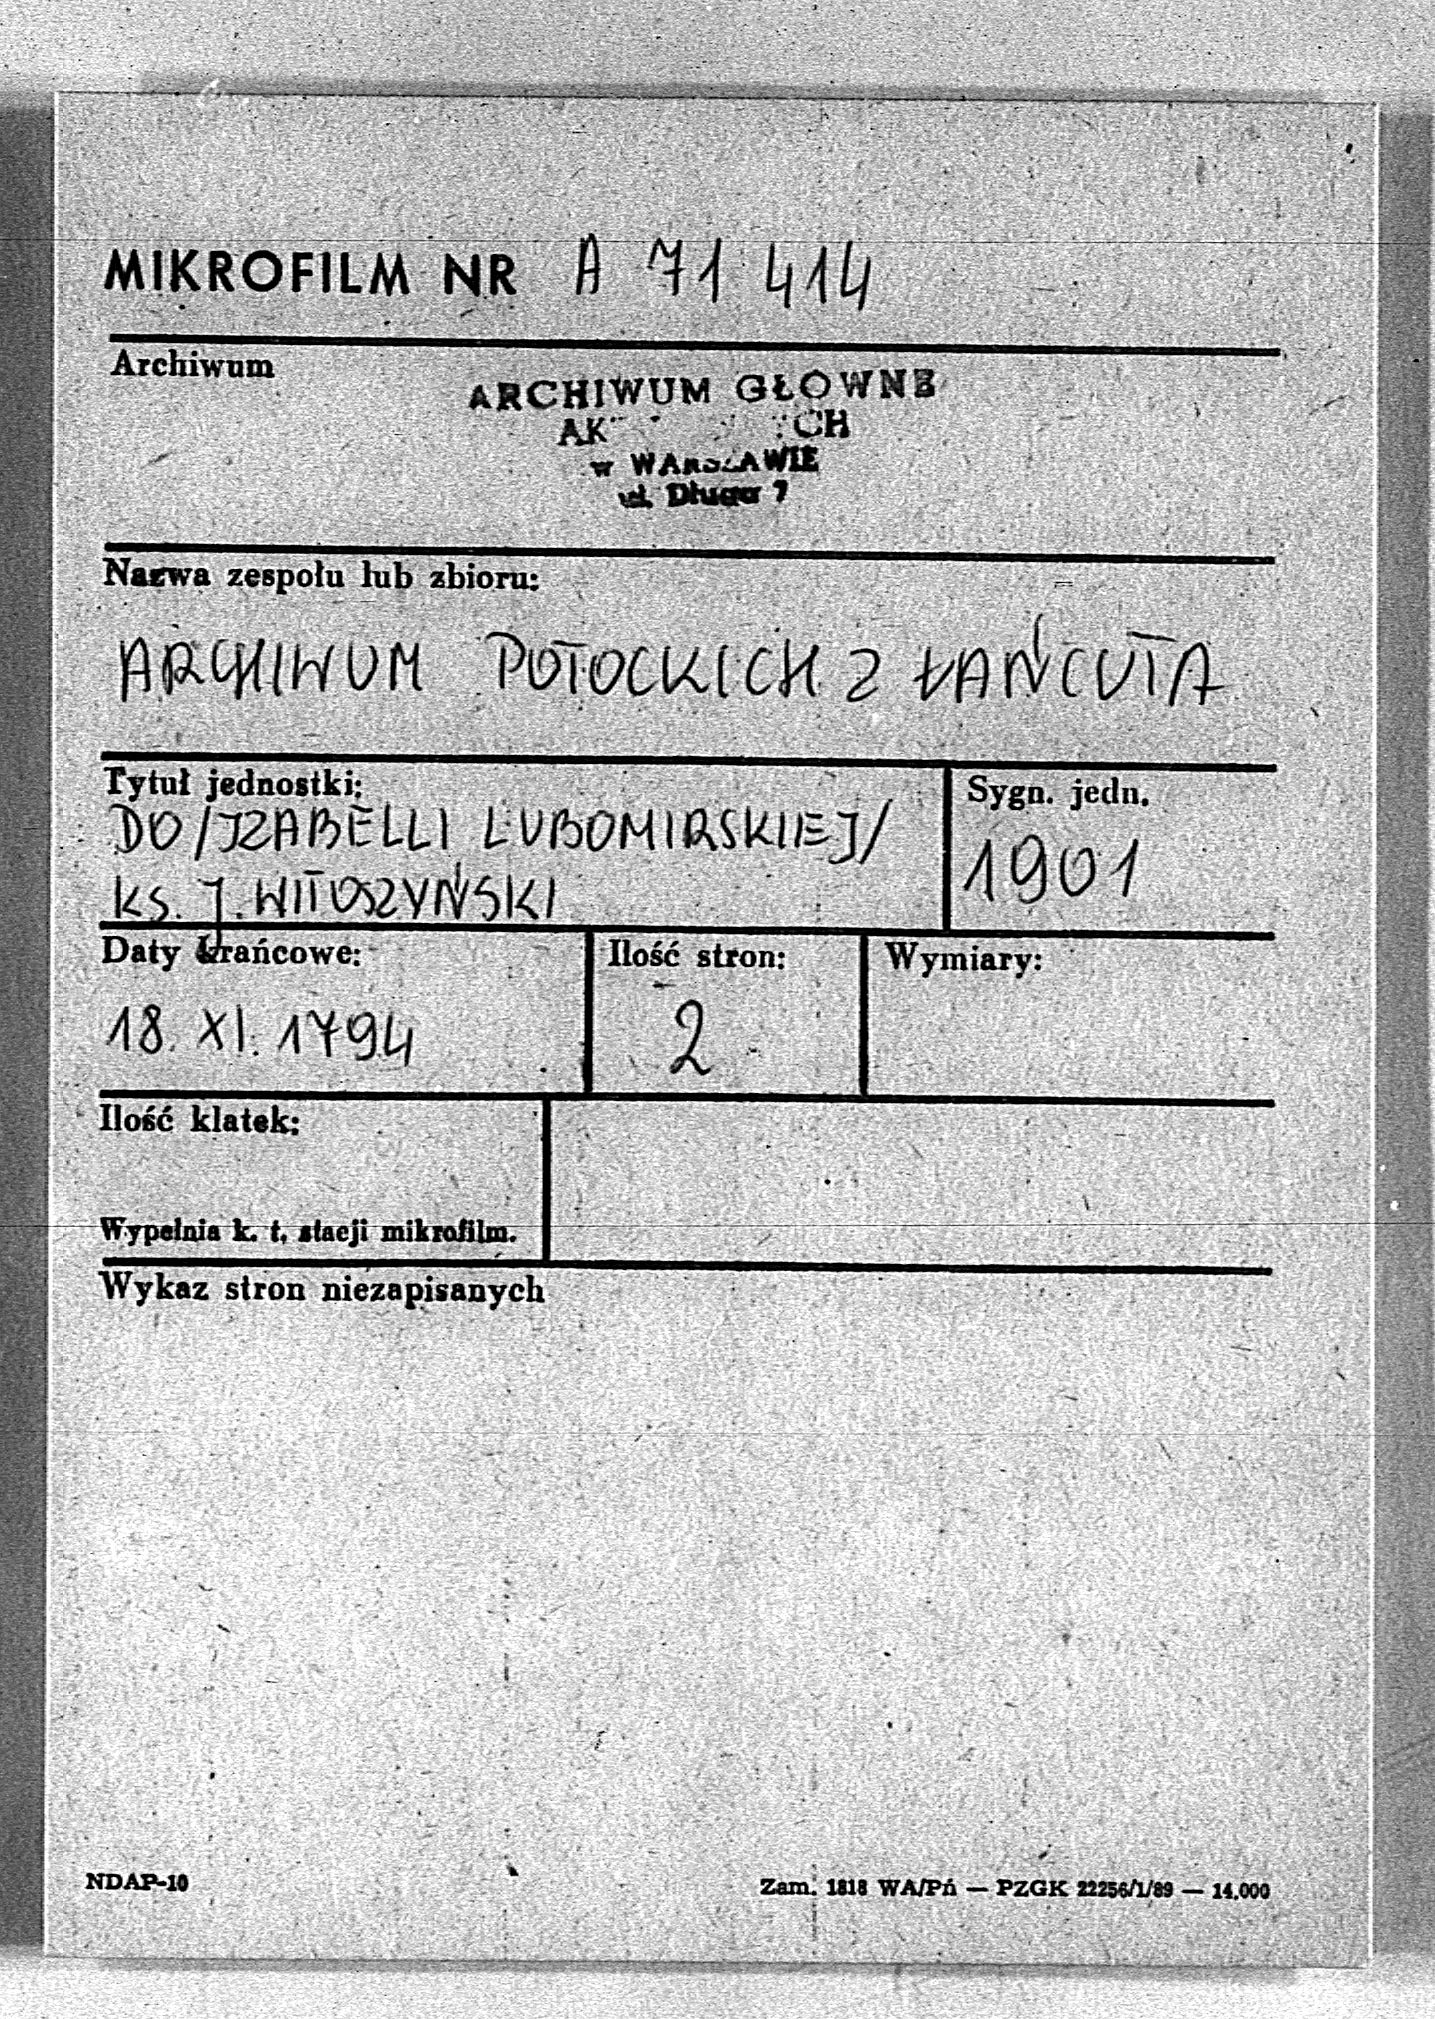 MIKROFILM NR A 71 414
Archiwum
ARCHIWUM GŁÓWNE
w WARSZAWIE
ul. Długa 7
Nazwa zespołu lub zbioru:
ARCHIWUM POTOCKICH Z ŁAŃCUTA
Tytuł jednostki:
DO /IZABELLI LUBOMIRSKIEJ/
KS. J. WITOSZYŃSKI
Sygn. jedn.
1901
Daty krańcowe:
18. XI. 1794
Ilość stron:
2
Wymiary:
Ilość klatek:
Wypełnia k. t. stacji mikrofilm.
Wykaz stron niezapisanych
NDAP-10
Zam. 1818 WA/Pń — PZGK 22256/1/89 — 14.000